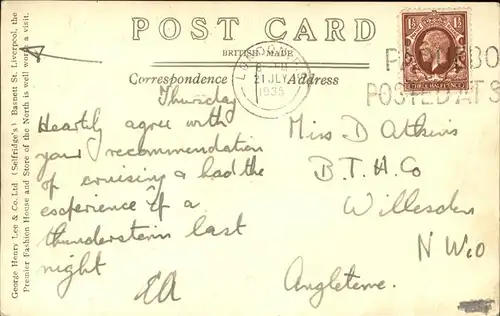 POST CARD
BRITISH MADE
Correspondence
Address
LONDON
21 JLY
1935
1½ 1½
THREE HALFPENCE
POSTED AT S
Thursday
Heartly agree with
your recommendation
of cruising & had the
experience of a
thunderstorm last
night
EA
Miss D Atkins
B.T.H.Co
Willesden
N W 10
Angleterre.
George Henry Lee & Co. Ltd (Selfridge's) Basnett St. Liverpool, the
Premier Fashion House and Store of the North is well worth a visit.